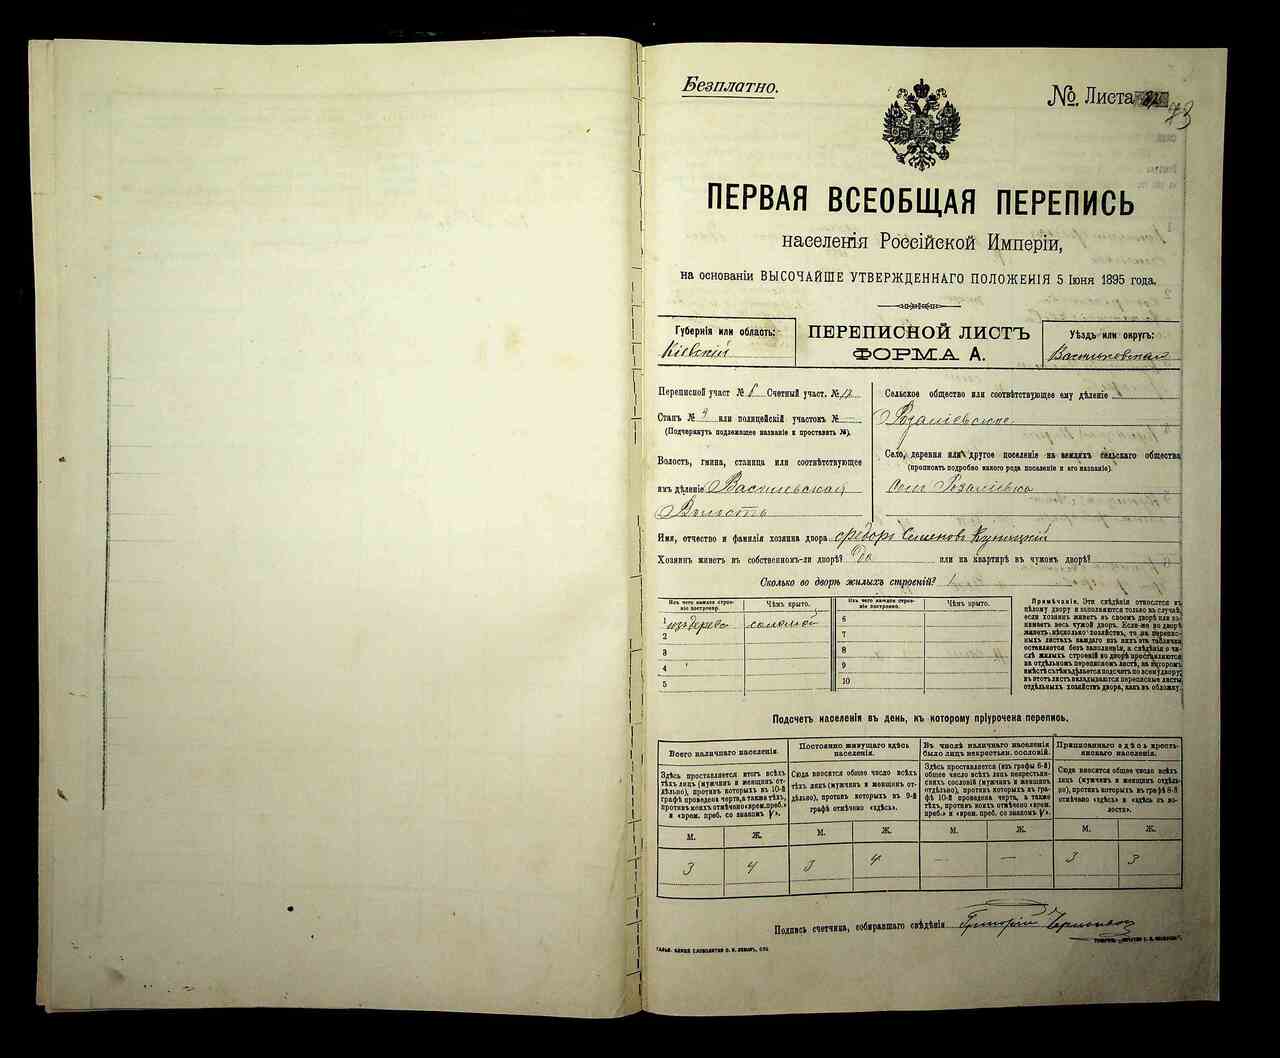 Безплатно.
№ Листа 83
ПЕРВАЯ ВСЕОБЩАЯ ПЕРЕПИСЬ
населенія Россійской Имперіи,
на основаніи ВЫСОЧАЙШЕ УТВЕРЖДЕННАГО ПОЛОЖЕНІЯ 5 Іюня 1895 года.
Губернія или область:
Кіевскій
ПЕРЕПИСНОЙ ЛИСТЪ
ФОРМА А.
Уѣздъ или округъ:
Васильковская
Переписной участ № 6 Счетный участ. № 12
Станъ № 4 или полицейскій участокъ №
(Подчеркнуть подлежащее названіе и проставить №).
Волость, гмина, станица или соотвѣтствующее
имъ дѣленіе Васильевская
Волость
Сельское общество или соотвѣтствующее ему дѣленіе
Розаліевское
Село, деревня или другое поселеніе на земляхъ сельскаго общества
(прописать подробно какого рода поселеніе и его названіе).
Село Розаліевка
Имя, отчество и фамилія хозяина двора Федоръ Семеновъ
Хозяинъ живетъ въ собственномъ-ли дворѣ? Да или на квартирѣ въ чужомъ дворѣ?
Сколько во дворѣ жилыхъ строеній? 1
Изъ чего каждое строеніе построено. Чѣмъ крыто. Изъ чего каждое строеніе построено. Чѣмъ крыто.
1 изъ дерева соломой 6
2 7
3 8
4 9
5 10
Примѣчаніе. Эти свѣдѣнія относятся къ
цѣлому двору и заполняются только въ случаѣ,
если хозяинъ живетъ въ своемъ дворѣ или занимаетъ весь чужой дворъ. Если-же во дворѣ
живетъ нѣсколько хозяйствъ, то на переписныхъ листахъ каждаго изъ нихъ эта табличка
оставляется безъ заполненія, а свѣдѣнія о числѣ жилыхъ строеній во дворѣ проставляются
на отдѣльномъ переписномъ листѣ, на которомъ
вмѣстѣ съ тѣмъ дѣлается подсчетъ по всему двору;
въ этотъ листъ вкладываются переписные листы
отдѣльныхъ хозяйствъ двора, какъ въ обложку.
Подсчетъ населенія въ день, къ которому пріурочена перепись.
Всего наличнаго населенія.
Здѣсь проставляется итогъ всѣхъ
тѣхъ лицъ (мужчинъ и женщинъ отдѣльно), противъ которыхъ въ 10-й
графѣ проведена черта, а также тѣхъ,
противъ коихъ отмѣчено «врем. преб.»
и «врем. преб. со знакомъ V».
Постоянно живущаго здѣсь
населенія.
Сюда вносится общее число всѣхъ
тѣхъ лицъ (мужчинъ и женщинъ отдѣльно), противъ которыхъ въ 9-й
графѣ отмѣчено «здѣсь».
Въ числѣ наличнаго населенія
было лицъ некрестьян. сословій.
Здѣсь проставляется (изъ графы 6-й)
общее число всѣхъ лицъ некрестьянскихъ сословій (мужчинъ и женщинъ
отдѣльно), противъ которыхъ въ графѣ 10-й проведена черта, а также
тѣхъ, противъ коихъ отмѣчено «врем.
преб.» и «врем. преб. со знакомъ V».
Приписаннаго здѣсь крестьянскаго населенія.
Сюда вносится общее число всѣхъ
лицъ (мужчинъ и женщинъ отдѣльно), противъ которыхъ въ графѣ 8-й
отмѣчено «здѣсь» и «здѣсь въ волости».
М. Ж. М. Ж. М. Ж. М. Ж.
3 4 3 4 — — 3 3
Подпись счетчика, собиравшаго свѣдѣнія Григорій